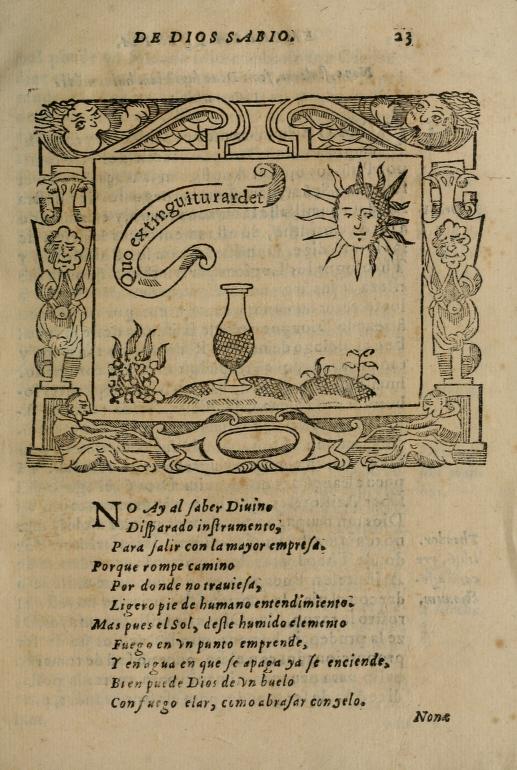 DE DIOS SABIO.
23
Quo extinguiturardet
NO Ay al ſaber Diuino
Diſparado inſtrumento,
Para ſalir con la mayor empreſa.
Porque rompe camino
Por donde no trauieſa,
Ligero pie de humano entendimiento.
Mas pues el Sol, deſte humido elemento
Fuego en vn punto emprende,
Y en agua en que ſe apaga ya ſe enciende,
Bien puede Dios de vn buelo
Con fuego elar, como abraſar con yelo.
Nonæ